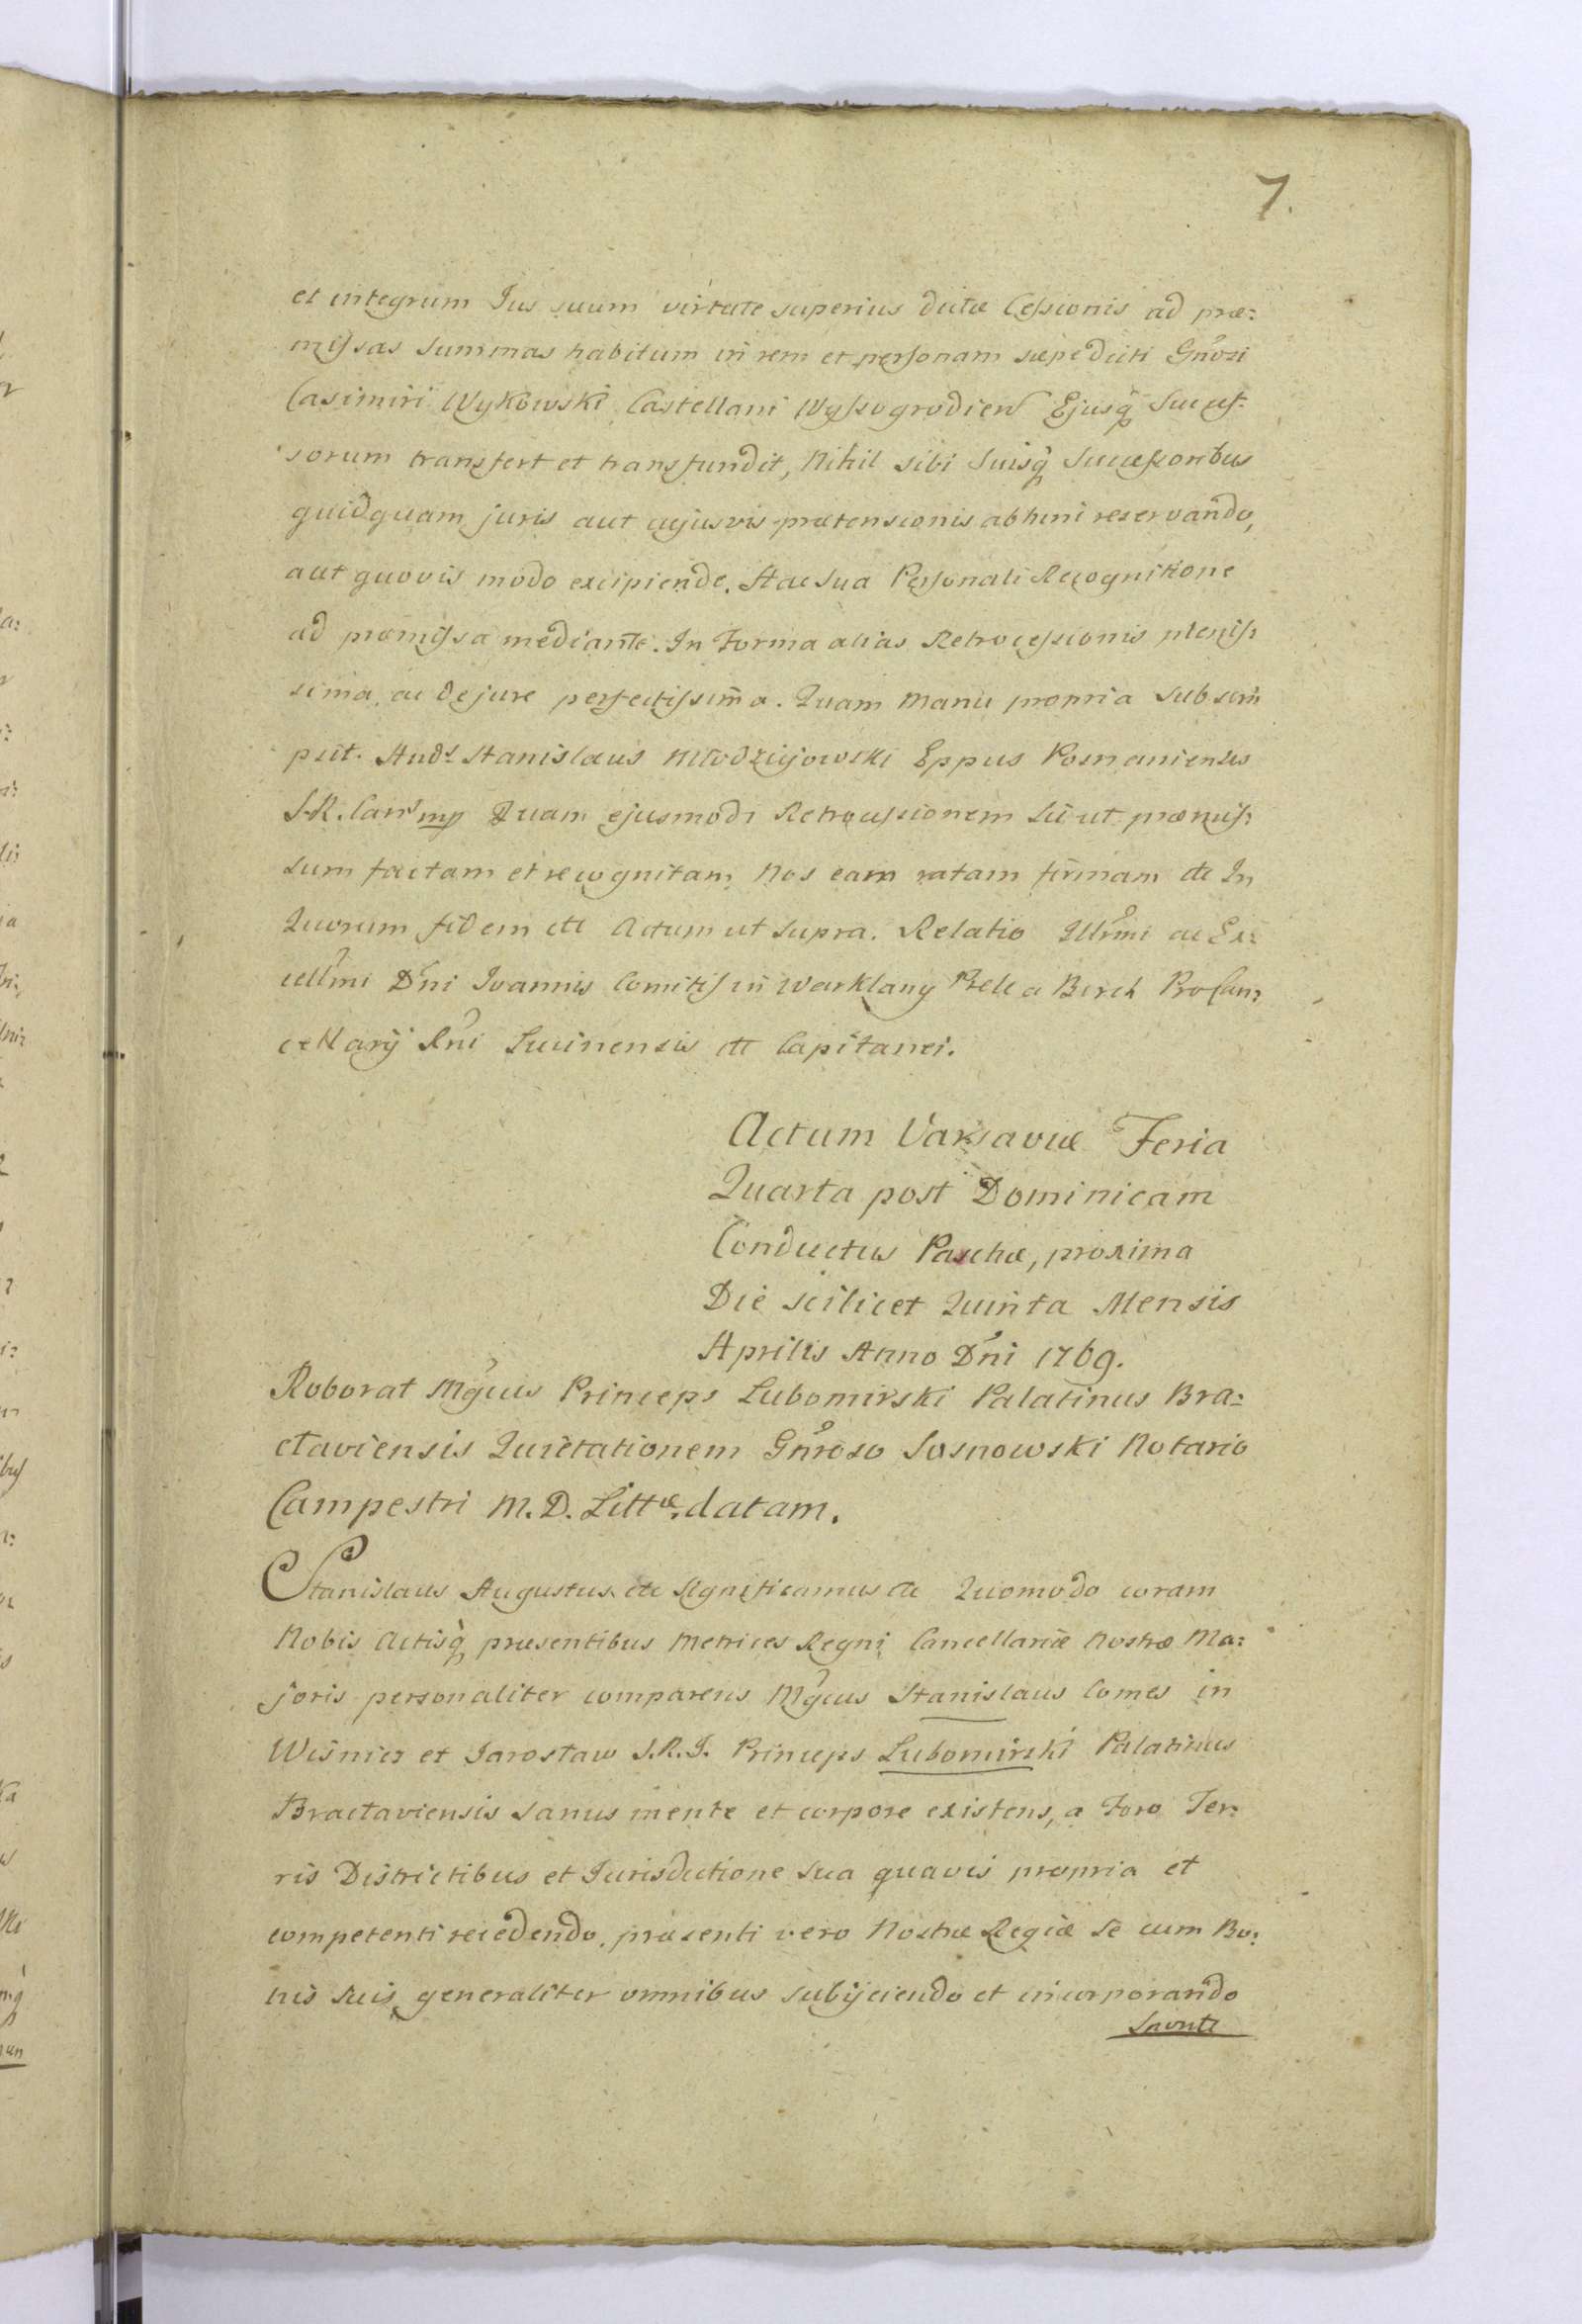 7.
et integrum Jus suum virtute superius dictæ Cessionis ad præ:
missas Summas habitum in rem et personam sæpedicti Gnrosi
Casimiri Wykowski Castellani Wyssogrodien Ejusq Suces:
sorum transfert et transfundit, Nihil sibi Suisq Sucessoribus
quidquam juris aut cujusvis prætensionis abhinc reservando,
aut quovis modo excipiendo. Hac Sua Personali Recognitione
ad præmissa mediante. In Forma alias Retrocessionis plenis:
sima, ac de jure perfectissima. Quam Manu propria Subscri
psit. Andr Stanislaus Młodziejowski Eppus Posnaniensis
S.R. Canr mp Quam ejusmodi Retrocessionem Sic ut præmis:
sum factam et recognitam Nos eam ratam firmam etc In
Quorum fidem etc Actum ut Supra. Relatio Illrmi ac Ex:
cellmi Dni Joannis Comitis in Warklany Pelc a Borch ProCan:
cellarij Rni Lucinensis etc Capitanei.
Actum Varsaviæ Feria
Quarta post Dominicam
Conductus Paschæ, proxima
Die scilicet Quinta Mensis
Aprilis Anno Dni 1769.
Roborat Mgcus Princeps Lubomirski Palatinus Bra:
ctaviensis Quietationem Gnroso Sosnowski Notario
Campestri M. D. Littæ. datam.
Stanislaus Augustus etc Significamus etc Quomodo coram
Nobis Actisq præsentibus Metrices Regni Cancellariæ Nostræ Ma:
joris personaliter comparens Mgcus Stanislaus Comes in
Wiśnicz et Jarosław S.R.J. Princeps Lubomirski Palatinus
Bractaviensis sanus mente et corpore existens, a Foro Ter:
ris Districtibus et Jurisdictione Sua quavis propria et
competenti recedendo, præsenti vero Nostræ Regiæ Se cum Bo:
nis Suis generaliter omnibus subijciendo et incorporando